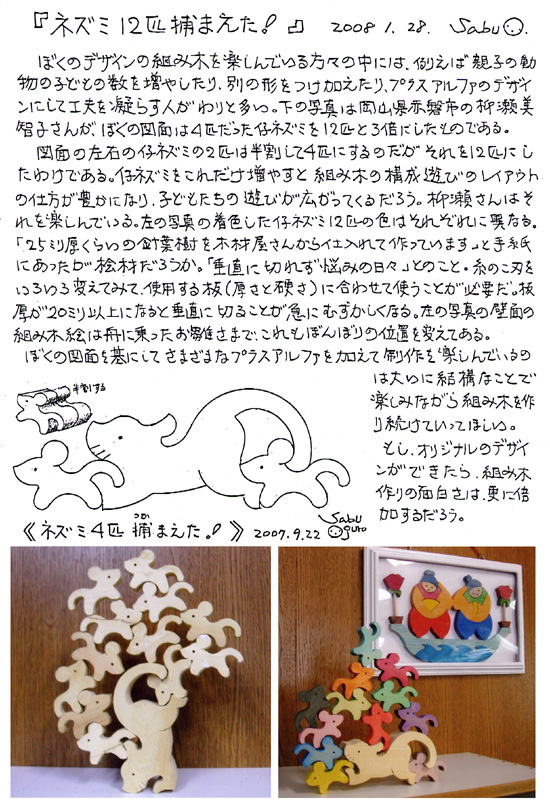 『ネズミ12匹捕まえた!』 2008 1. 28. Sabu
ぼくのデザインの組み木を楽しんでいる方々の中には、例えば親子の動
物の子どもの数を増やしたり、別の形をつけ加えたり、プラスアルファのデザイ
ンにして工夫を凝らす人がわりと多い。下の写真は岡山県赤磐市の柳瀬美
智子さんが、ぼくの図面は4匹だった仔ネズミを12匹と3倍にしたものである。
図面の左右の仔ネズミの2匹は半割して4匹にするのだが それを12匹にし
たわけである。仔ネズミをこれだけ増やすと 組み木の構成遊びのレイアウト
の仕方が豊かになり、子どもたちの遊びが広がってくるだろう。柳瀬さんはそ
れを楽しんでいる。左の写真の着色した仔ネズミ12匹の色はそれぞれに異なる。
「25ミリ厚くらいの針葉樹を木材屋さんから仕入れて作っています。」と手紙
にあったが桧材だろうか。「垂直に切れず悩みの日々」とのこと。糸のこ刃を
いろいろ変えてみて、使用する板(厚さと硬さ)に合わせて使うことが必要だ。板
厚が20ミリ以上になると垂直に切ることが急にむずかしくなる。左の写真の壁面の
組み木絵は舟に乗ったお雛さまで、これもぼんぼりの位置を変えてある。
ぼくの図面を基にしてさまざまなプラスアルファを加えて制作を楽しんでいるの
は大いに結構なことで
楽しみながら組み木を作
り続けていってほしい。
もし、オリジナルのデザイ
ンができたら、組み木
作りの面白さは、更に倍
加するだろう。
半割する
《ネズミ4匹 捕まえた。!》 2007.9.22 Sabu Oguro
つかい